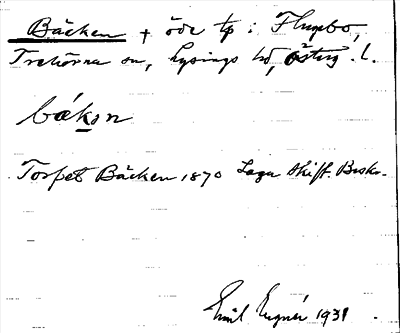 Bäcken + öde tp i Flugebo,
Trehörna sn, Lysings hd, Östg. l.
bák̲ən
Torpet Bäcken 1870 Laga skift. Beskr.
Emil 1931